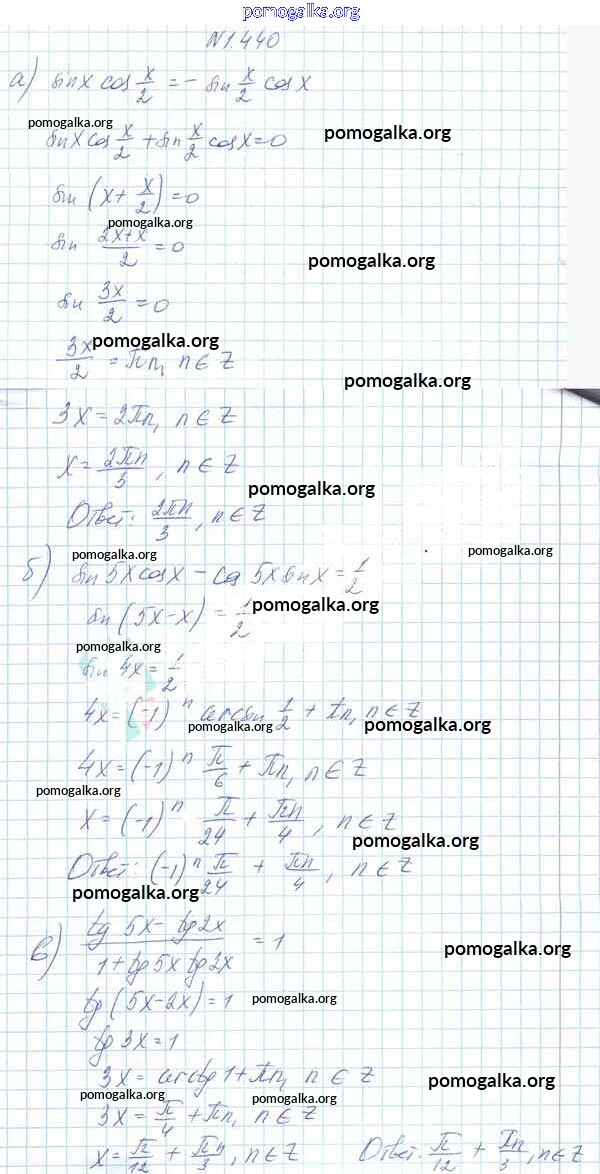 pomogalka.org
N1.440
а) sin x cos x/2 = - sin x/2 cos x
pomogalka.org
pomogalka.org
sin x cos x/2 + sin x/2 cos x = 0
sin (x + x/2) = 0
pomogalka.org
sin (2x+x)/2 = 0
pomogalka.org
sin 3x/2 = 0
pomogalka.org
3x/2 = πn, n ∈ Z
pomogalka.org
3x = 2πn, n ∈ Z
x = 2πn/3, n ∈ Z
pomogalka.org
Ответ: 2πn/3, n ∈ Z
pomogalka.org
pomogalka.org
б) sin 5x cos x - cos 5x sin x = 1/2
pomogalka.org
sin (5x-x) = 1/2
pomogalka.org
sin 4x = 1/2
4x = (-1)^n arcsin 1/2 + πn, n ∈ Z
pomogalka.org
pomogalka.org
4x = (-1)^n π/6 + πn, n ∈ Z
pomogalka.org
x = (-1)^n π/24 + πn/4, n ∈ Z
pomogalka.org
Ответ: (-1)^n π/24 + πn/4, n ∈ Z
pomogalka.org
в) (tg 5x - tg 2x)/(1 + tg 5x tg 2x) = 1
pomogalka.org
tg (5x-2x) = 1
pomogalka.org
tg 3x = 1
3x = arctg 1 + πn, n ∈ Z
pomogalka.org
pomogalka.org
3x = π/4 + πn, n ∈ Z
pomogalka.org
x = π/12 + πn/3, n ∈ Z Ответ: π/12 + πn/3, n ∈ Z